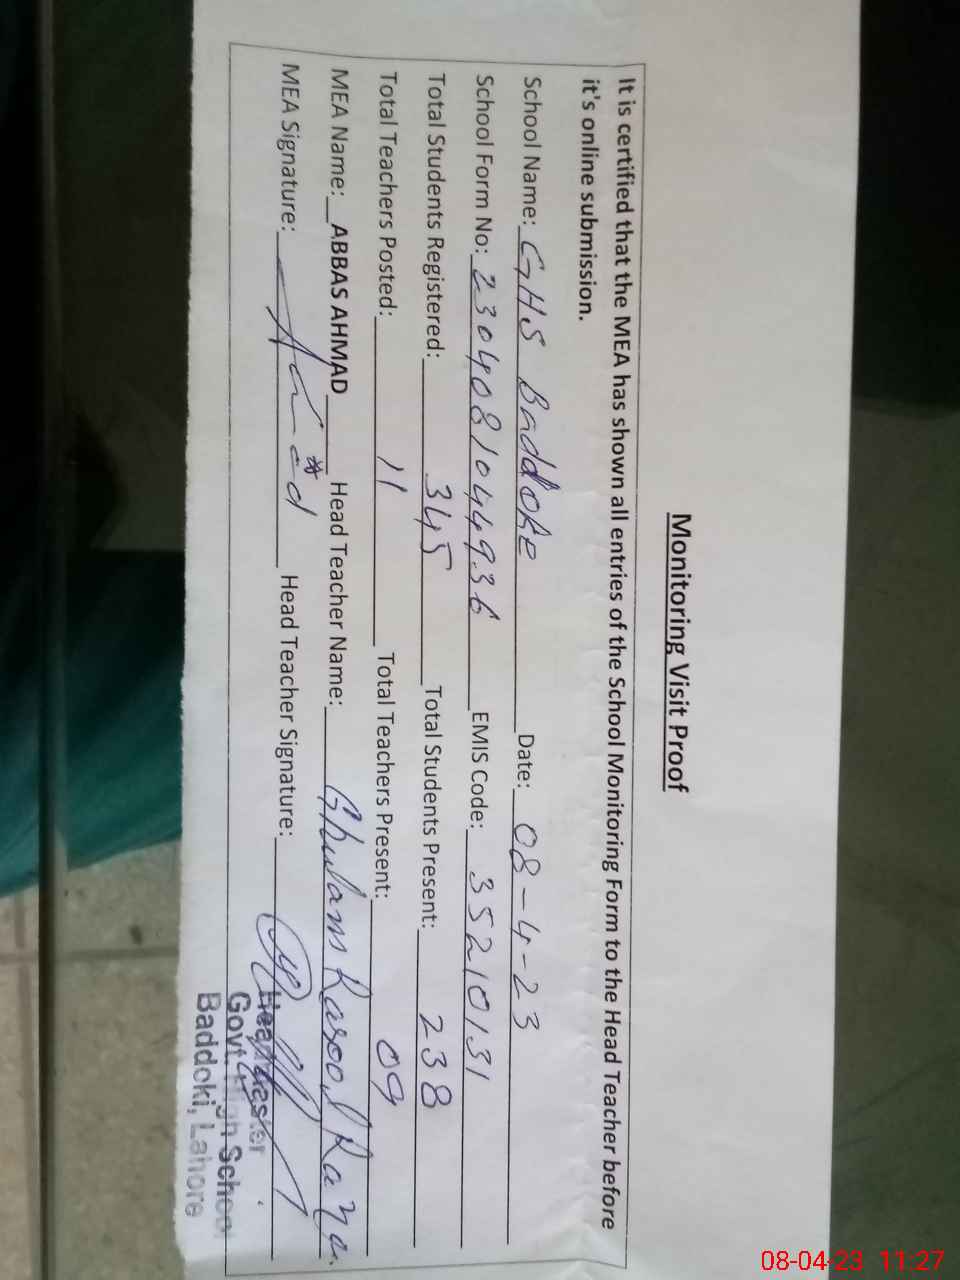 Monitoring Visit Proof
It is certified that the MEA has shown all entries of the School Monitoring Form to the Head Teacher before
it's online submission.
School Name: GHS Baddoke Date: 08-4-23
School Form No: 2304081044936 EMIS Code: 35210131
Total Students Registered: 345 Total Students Present: 238
Total Teachers Posted: 11 Total Teachers Present: 09
MEA Name: ABBAS AHMAD Head Teacher Name: Ghulam Rasool Raza
MEA Signature: Head Teacher Signature:
Headmaster
Govt. High School
Baddoki, Lahore
08-04-23 11:27